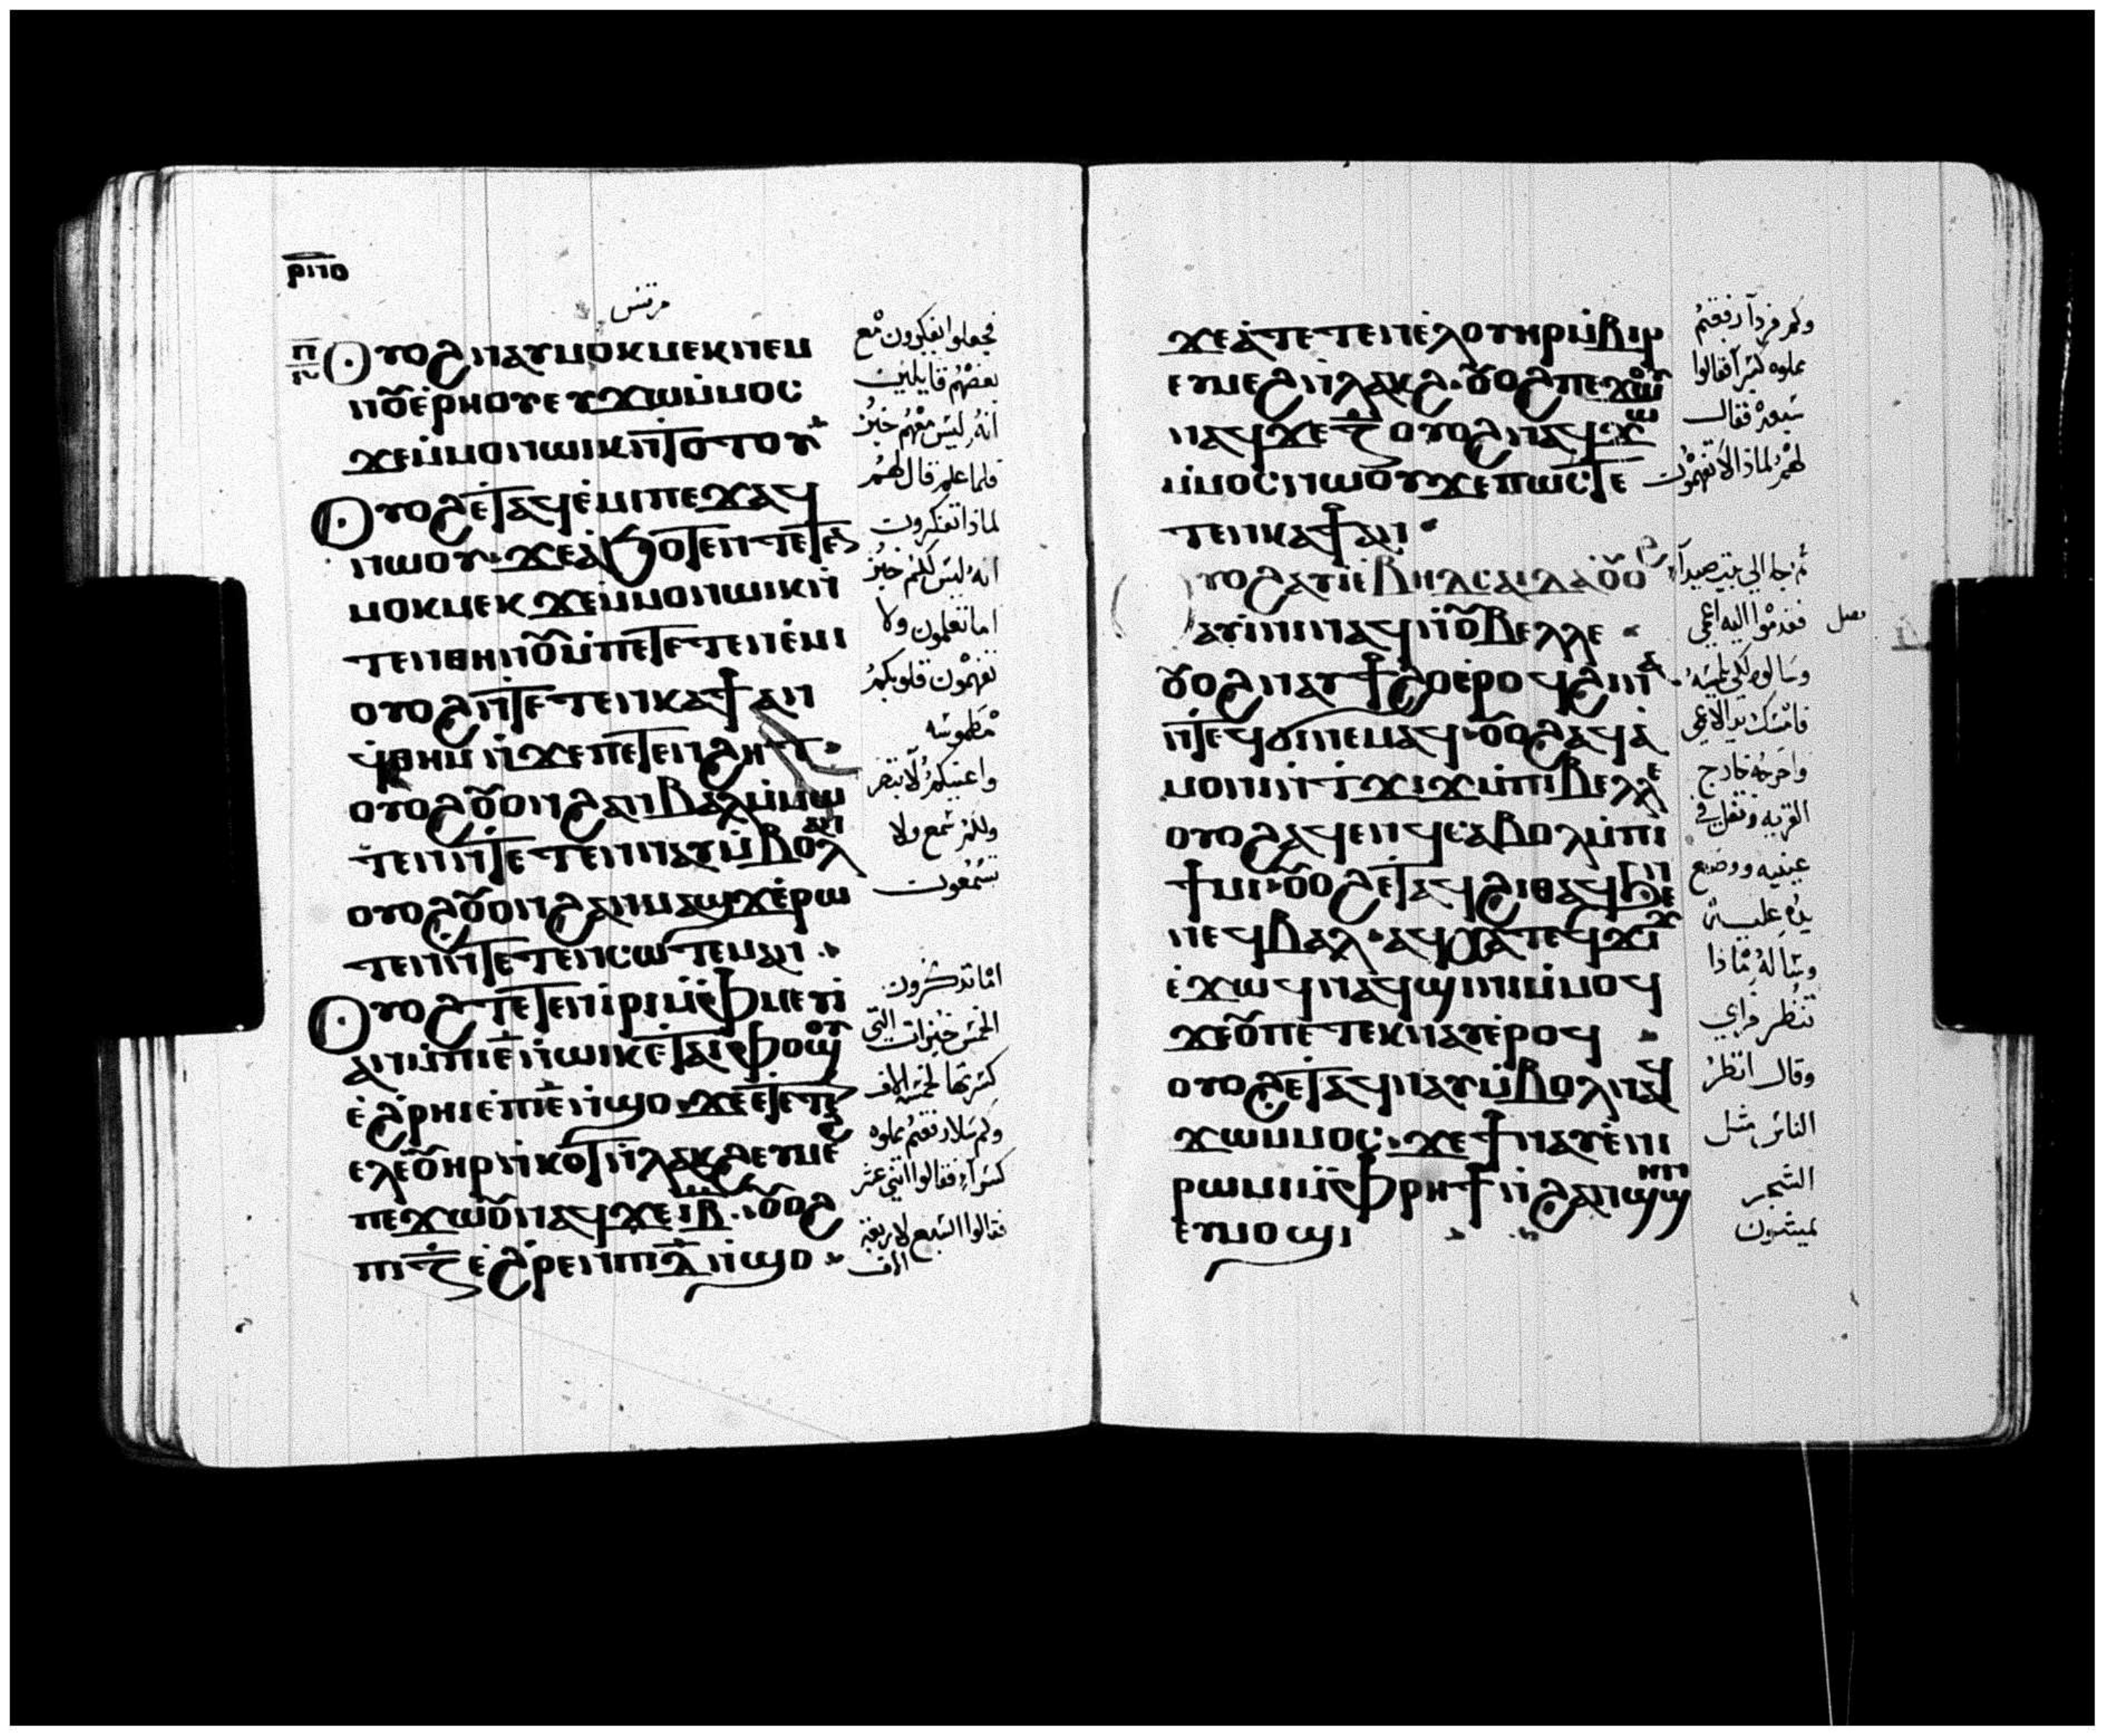 ⲣⲛⲑ
مرقس
ⲟⲩⲟϩ ⲛⲁⲩⲙⲟⲕⲙⲉⲕ ⲛⲉⲙ
ⲛⲟⲩⲉⲣⲏⲟⲩ ⲉⲩϫⲱ ⲙⲙⲟⲥ
ϫⲉ ⲙⲙⲟⲛ ⲱⲓⲕ ⲛⲧⲟⲧⲟⲩ
ⲟⲩⲟϩ ⲉⲧⲁϥⲉⲙⲓ ⲡⲉϫⲁϥ
ⲛⲱⲟⲩ ϫⲉ ⲁϧⲟⲧⲉⲛ ⲧⲉⲧⲉ
ⲙⲟⲕⲙⲉⲕ ϫⲉ ⲙⲙⲟⲛ ⲱⲓⲕ ⲛ
ⲧⲉⲛⲑⲏⲛⲟⲩ ⲙⲡⲁⲧⲉⲧⲉⲛⲉⲙⲓ
ⲟⲩⲟϩ ⲛⲧⲉⲧⲉⲛⲕⲁϯ ⲁⲛ
ϥⲑⲏⲙ ⲛϫⲉ ⲡⲉⲧⲉⲛϩⲏⲧ
ⲟⲩⲟϩ ⲟⲩⲟⲛ ϩⲁⲛⲃⲁⲗ ⲙⲙⲱ
ⲧⲉⲛ ⲛⲧⲉⲧⲉⲛⲛⲁⲩ ⲙⲃⲟⲗ ⲁⲛ
ⲟⲩⲟϩ ⲟⲩⲟⲛ ϩⲁⲛⲙⲁϣϫ ⲉⲣⲱ
ⲧⲉⲛ ⲛⲧⲉⲧⲉⲛⲥⲱⲧⲉⲙ ⲁⲛ
ⲟⲩⲟϩ ⲧⲉⲧⲉⲛⲓⲣⲓ ⲙⲫⲙⲉⲩⲓ
ⲁⲛ ⲙⲡⲓⲉ̅ ⲛⲱⲓⲕ ⲉⲧⲁⲓⲫⲟϣⲟⲩ
ⲉϩⲣⲏⲓ ⲉⲡⲓⲉ̅ ⲛϣⲟ ϫⲉ ⲉⲧⲉⲧⲉⲛ
ⲉⲗ ⲟⲩⲏⲣ ⲛⲕⲟⲧ ⲛⲗⲁⲕϩ ⲉⲩⲙⲉϩ
ⲡⲉϫⲱⲟⲩ ⲛⲁϥ ϫⲉ ⲓⲃ̅ ⲟⲩⲟϩ
ⲡⲓⲍ̅ ⲉϩⲣⲉⲛ ⲡⲓⲇ̅ ⲛϣⲟ
فجعلوا يفكرون مع
بعضهم قايلين
انه ليس معهم خبز
فلما علم قال لهم
لماذا تفكروت
انه ليس لكم خبز
اما تعلمون ولا
تفهمون قلوبكم
مطموسه
واعينكم لا تنظر
ولكم سمع ولا
تسمعون
اما تذكرون
الخمس خبزات التي
كسرتها لخمسه الاف
وكم سلا رفعتم مملوه
كسرا فقالوا اثني عشر
فقالوا السبع لاربعة
الاف
ϫⲉ ⲁⲧⲉⲧⲉⲛⲉⲗ ⲟⲩⲏⲣ ⲙⲃⲓⲣ
ⲉⲩⲙⲉϩ ⲛⲗⲁⲕϩ ⲟⲩⲟϩ ⲡⲉϫⲱⲟⲩ
ⲛⲁϥ ϫⲉ ⲍ̅ ⲟⲩⲟϩ ⲛⲁϥϫⲱ
ⲙⲙⲟⲥ ⲛⲱⲟⲩ ϫⲉ ⲡⲱⲥ ⲧⲉ
ⲧⲉⲛⲕⲁϯ ⲁⲛ
ⲟⲩⲟϩ ⲁⲩⲓ ⲉⲃⲏⲑⲥⲁⲓⲇⲁ ⲟⲩⲟϩ
ⲁⲩⲓⲛⲓ ⲛⲁϥ ⲛⲟⲩⲃⲉⲗⲗⲉ
ⲟⲩⲟϩ ⲛⲁⲩϯϩⲟ ⲉⲣⲟϥ ϩⲓⲛⲁ
ⲛⲧⲉϥϭⲓ ⲛⲉⲙⲁϥ ⲟⲩⲟϩ ⲁϥⲁ
ⲙⲟⲛⲓ ⲛⲧϫⲓϫ ⲙⲡⲓⲃⲉⲗⲗⲉ
ⲟⲩⲟϩ ⲁϥⲉⲛϥ ⲥⲁⲃⲟⲗ ⲙⲡⲓ
ϯⲙⲓ ⲟⲩⲟϩ ⲉⲧⲁϥϩⲓⲑⲁϥ ϧⲉⲛ
ⲛⲉϥⲃⲁⲗ ⲁϥⲭⲁ ⲧⲉϥϫⲓϫ
ⲉϫⲱϥ ⲛⲁϥϣⲓⲛⲓ ⲙⲙⲟϥ
ϫⲉ ⲟⲩ ⲡⲉⲧⲉⲕⲛⲁⲩ ⲉⲣⲟϥ
ⲟⲩⲟϩ ⲉⲧⲁϥⲛⲁⲩ ⲙⲃⲟⲗ ⲛⲁϥ
ϫⲱ ⲙⲙⲟⲥ ϫⲉ ϯⲛⲁⲩ ⲉⲛⲓ
ⲣⲱⲙⲓ ⲙⲫⲣⲏϯ ⲛϩⲁⲛϣϣⲏⲛ
ⲉⲩⲙⲟϣⲓ
وكم فرد آ رفعتم
مملوه كسرا فقالوا
سبعه فقال
لهم لماذا لا تفهموت
ثم جا الى بيت صيدا
فقدموا اليه اعمى
فصل
وسالوه لكي يلمسه
فامسك يد الاعمى
واخرجه خارج
القريه وتفل في
عينيه ووضع
يده عليه
وساله ماذا
تنظر
وقال انظر
الناس مثل
الشجر
يمشون